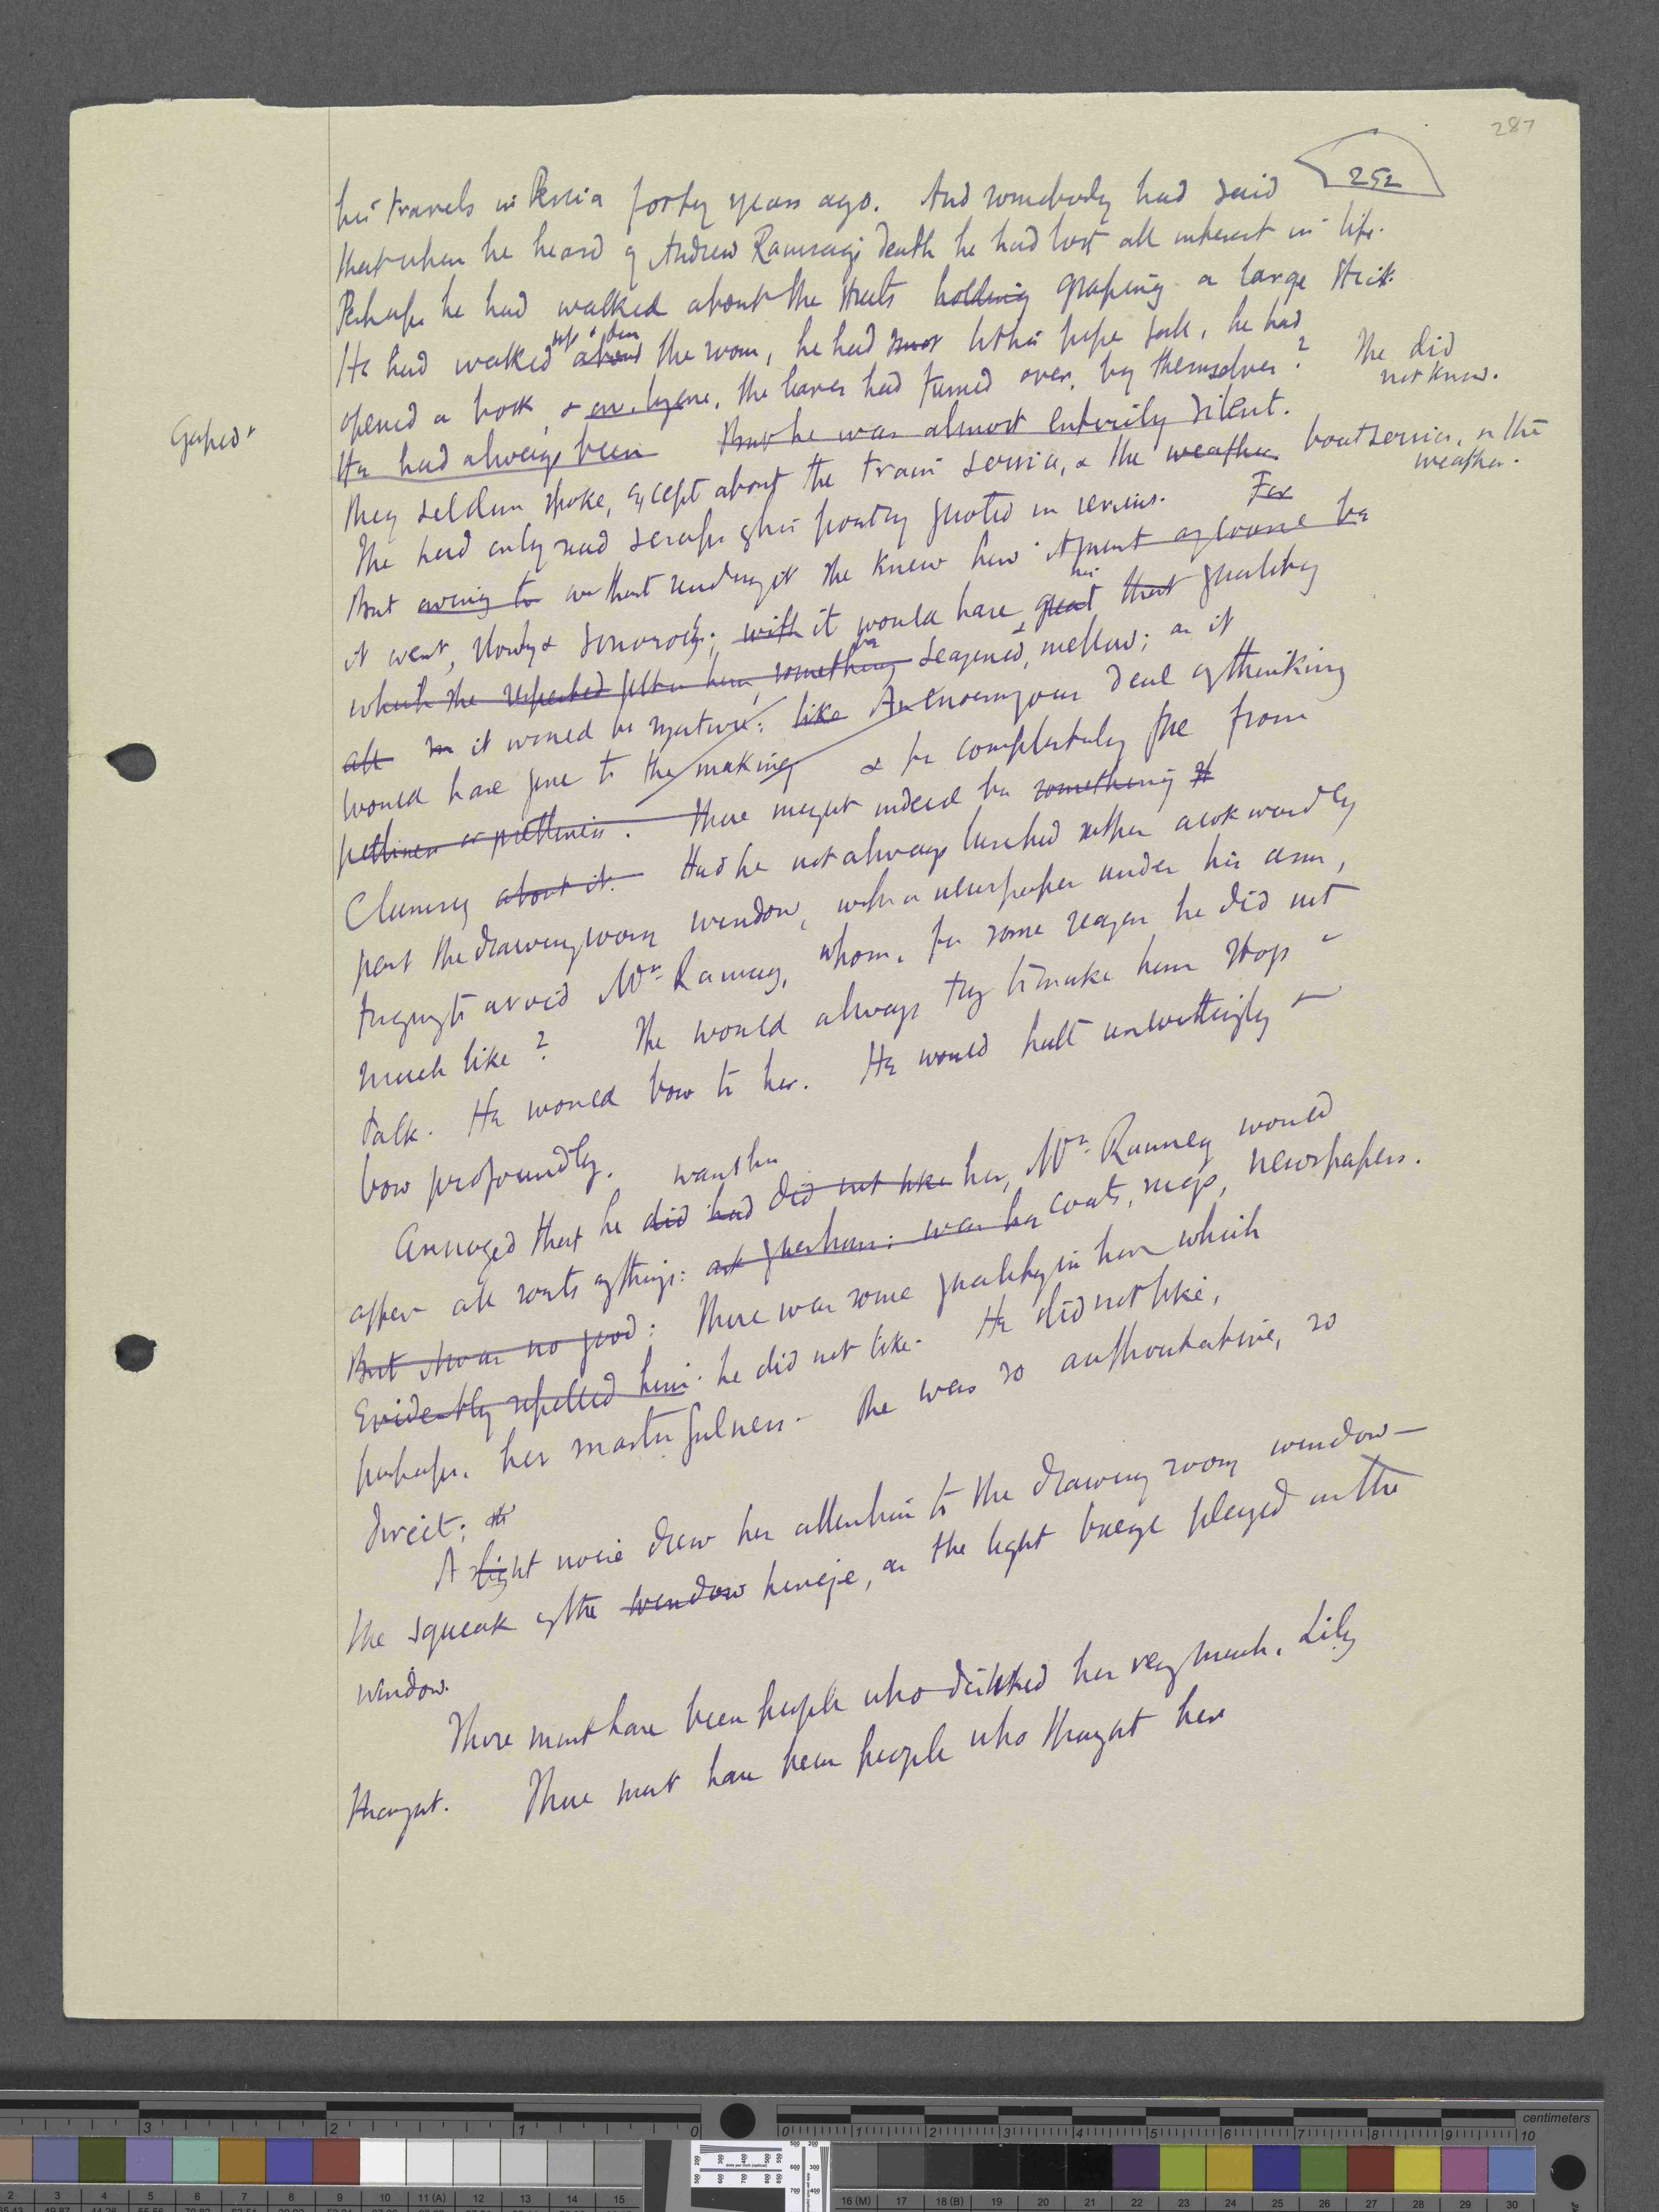 287
252
his travels in Persia forty years ago. And somebody had said
that when he heard of Andrew Ramsay's death he had lost all interest in life.
Perhaps he had walked about the streets holding grasping a large stick.
He had walked up & down about the room, he had let his pipe fall, he had
opened a book, & the leaves had turned over, by themselves? She did
not know.
Gasped
He had always been But he was almost entirely silent.
They seldom spoke, except about the train service, & the weather boat service, or the
weather.
She had only read scraps of his poetry quoted in reviews. For
But owing to without reading it she knew how it went of course be
it went, slowly & sonorously; with it would have his great that quality
which she respected felt in him, something seasoned, & mellow; as if
all in it would be mature: like An enormous deal of thinking
would have gone to the making & be completely free from
pettiness or prettiness. There might indeed be something
Clumsy about it. Had he not always lurched rather awkwardly
past the drawing room window, with a newspaper under his arm,
trying to avoid Mrs Ramsay, whom, for some reason he did not
much like? She would always try to make him stop &
talk. He would bow to her. He would halt unwillingly &
bow profoundly.
Annoyed that he did had did not like want her, Mrs Ramsay would
offer all sorts of things: ask questions: was he coats, rugs, newspapers.
But it was no good: There was some quality in her which
Evidently repelled him. he did not like. He did not like,
perhaps, her masterfulness. She was so authoritative, so
direct;
A light noise drew her attention to the drawing room window—
the squeak of the window hinge, as the light breeze played with the
window.
There must have been people who disliked her very much, Lily
thought. There must have been people who thought her
centimeters